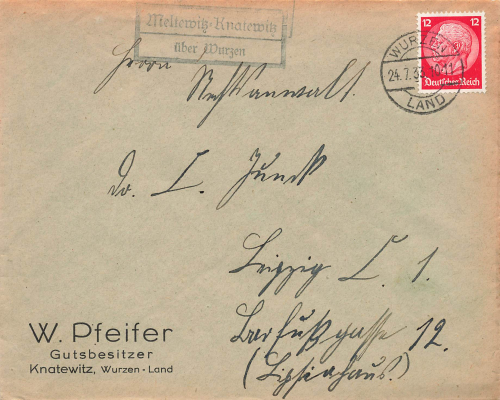 Meltewitz-Knatewitz
über Wurzen
12 12
Deutsches Reich
WURZEN
24.7.3
LAND
Herrn
Rechtsanwalt.
Dr. C. Junck
Leipzig C. 1.
Barfußgasse 12.
(Lipsiahaus.)
W. Pfeifer
Gutsbesitzer
Knatewitz, Wurzen-Land